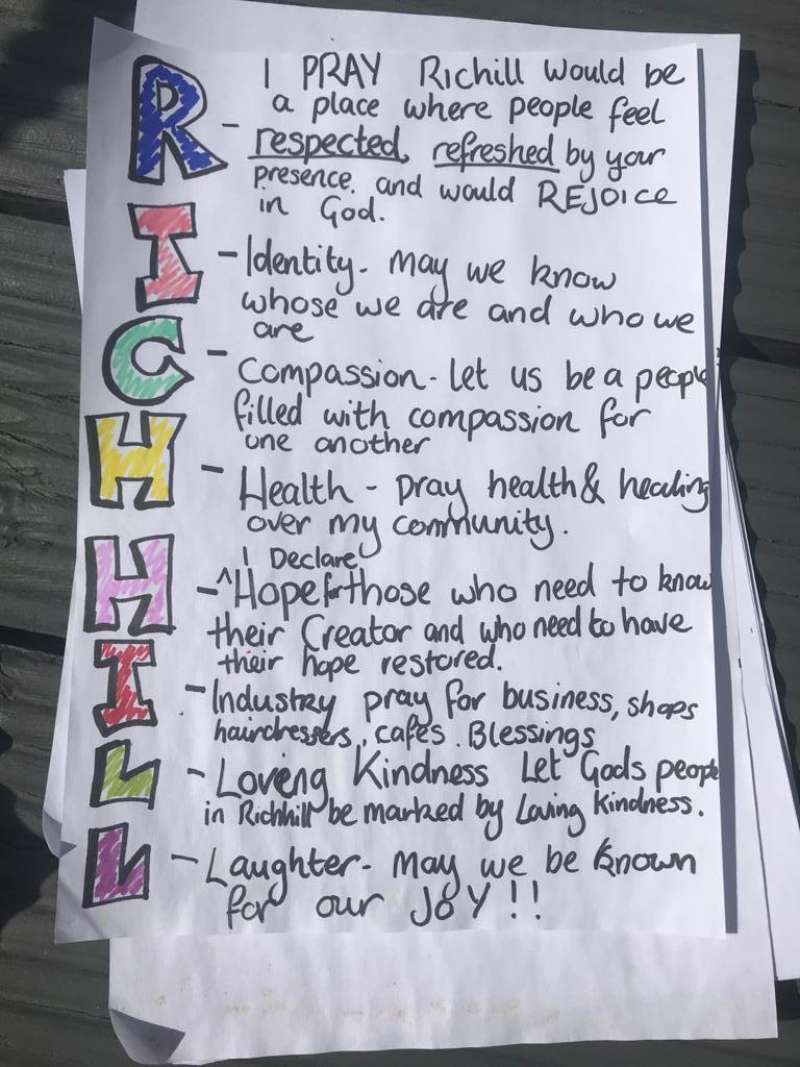 R
I PRAY Richill would be
a place where people feel
- respected, refreshed by your
presence. and would REJOICE
in God.
I
- Identity - May we know
whose we are and who we
are
C
- Compassion - Let us be a people
filled with compassion for
one another
H
- Health - pray health & healing
over my community.
H
I Declare
- ^Hope for those who need to know
their Creator and who need to have
their hope restored.
I
- Industry pray for business, shops
hairdressers, cafes. Blessings
L
- Loveng Kindness Let Gods people
in Richhill be marked by Loving Kindness.
L
- Laughter - May we be known
for our JOY!!